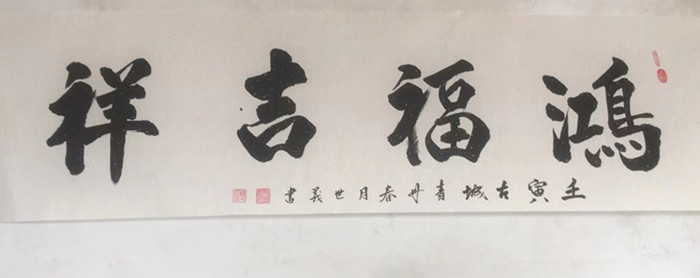 鸿福吉祥
壬寅古城青丹春月世義書